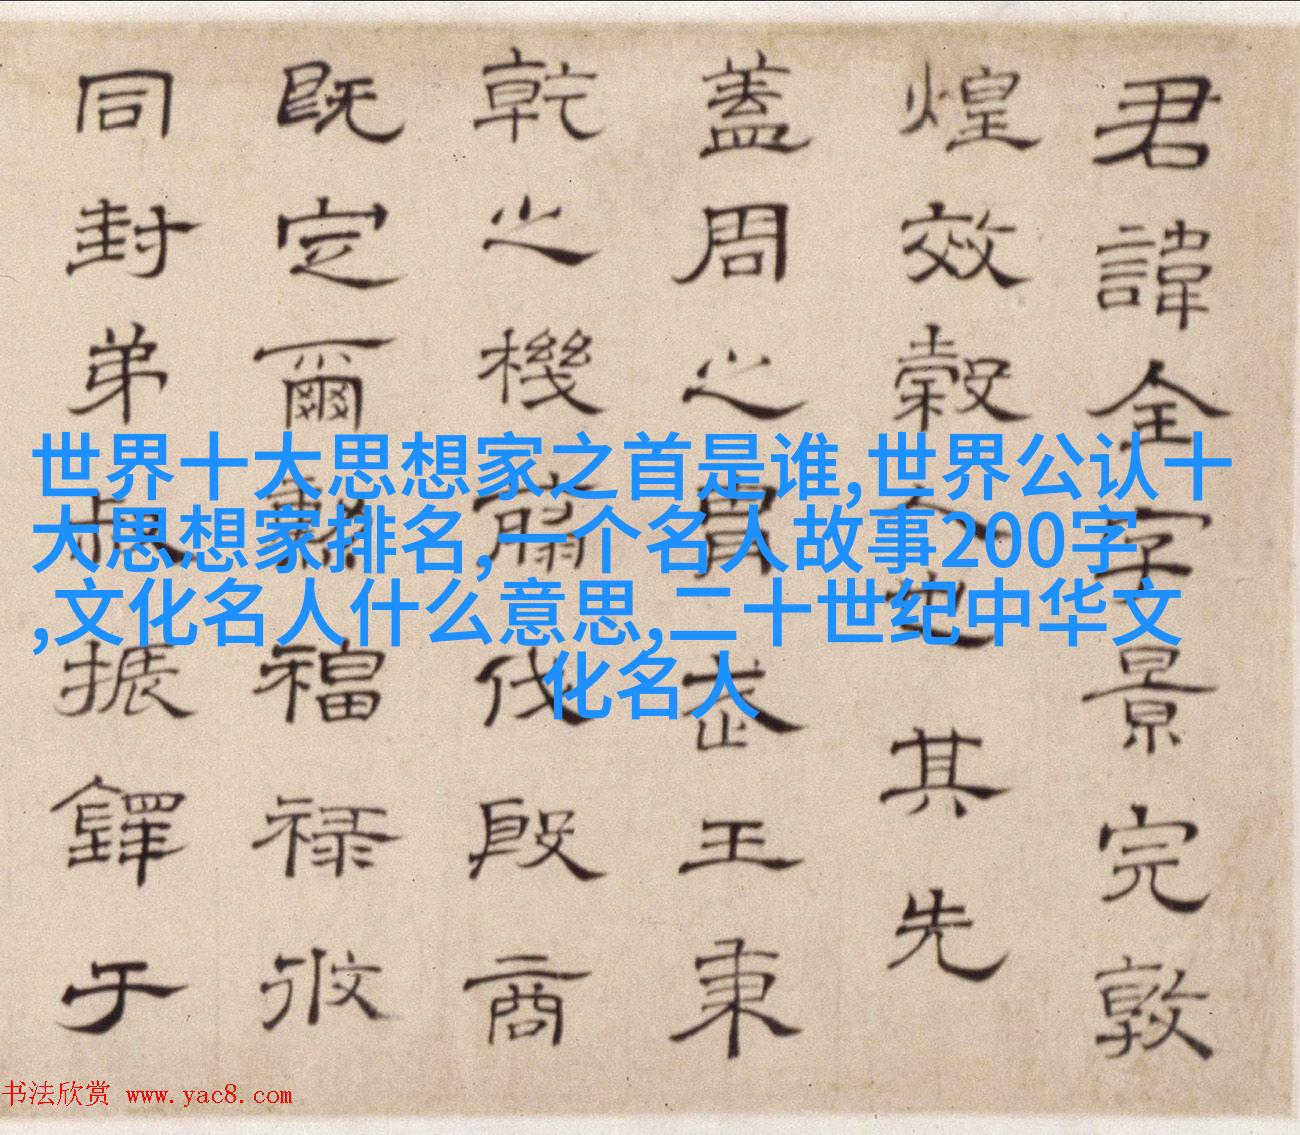 君諱全字景完敦
煌效穀人也其先
蓋周之胄武王秉
乾之機翦伐殷商
既定爾勳福禄攸
同封弟叔振鐸于
世界十大思想家之首是谁,世界公认十
大思想家排名,一个名人故事200字
,文化名人什么意思,二十世纪中华文
化名人
书法欣赏 www.yac8.com